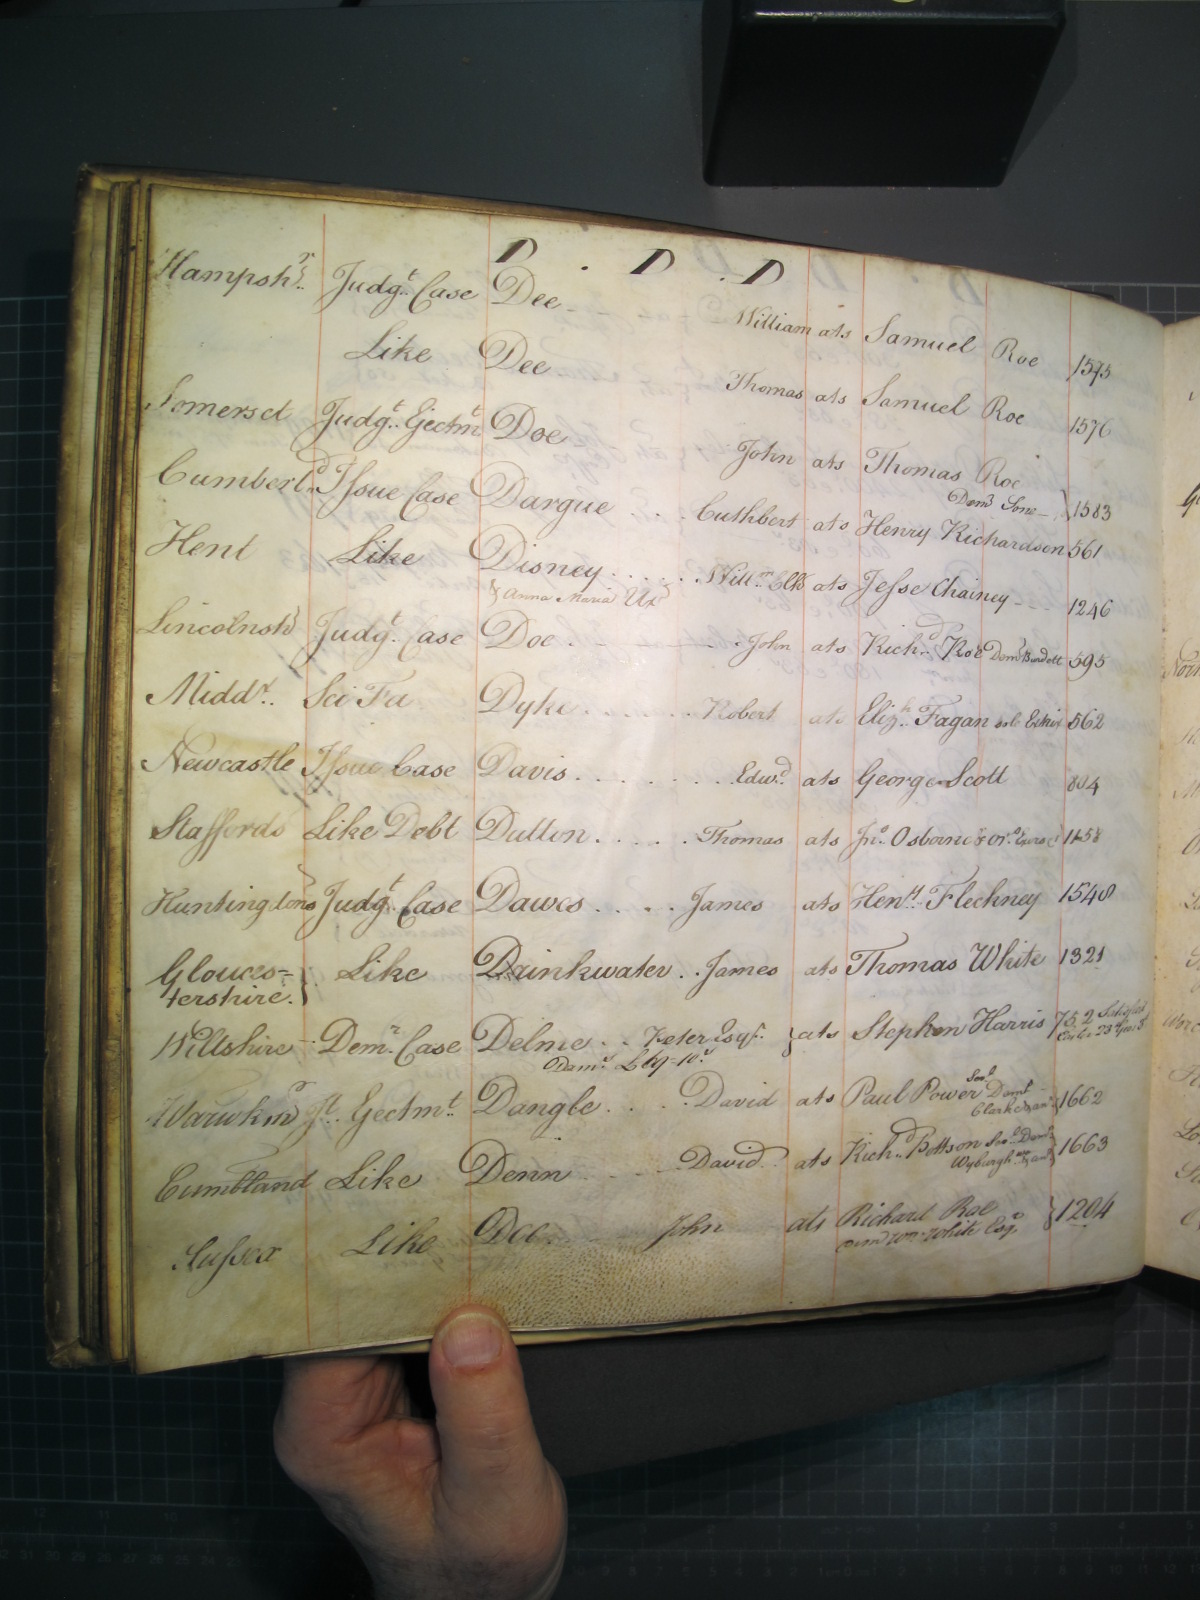 D . D . D
Hampshr. Judgt. Case Dee William ats Samuel Roe 1575
Like Dee Thomas ats Samuel Roe 1576
Somerset Judgt. Ejectmt Doe John ats Thomas Roe
Demd Sone 1583
Cumberld. Issue Case Dargue . . . Cuthbert ats Henry Richardson 561
Kent Like Disney . . . . . Willm. Ells ats Jesse Chainey 1246
& Anna Maria Ux
Lincolnsh Judgt. Case Doe . . John ats Richd. Roe Demd Burdett 595
Middx. Sci Fa Dyke . . . . . Robert ats Elizh. Fagan sole Exix 562
Newcastle Issue Case Davis . . . . . . . Edwd. ats George Scott 804
Staffords Like Debt Dutton . . . . . Thomas ats Jno. Osborne & or. 1158
Huntingdons Judgt. Case Dawes . . . . James ats Heny. Fleckney 1548
Glouces=
tershire. Like Drinkwater . . James ats Thomas White 1321
Wiltshire Demr. Case Delme . . Peter Esqr. ats Stephen Harris 762
Dams. £69=10s
Warwk Jt. Ejectmt. Dangle . . . . David ats Paul Power 1662
Cumbland Like Denn David ats Richd. Pottson 1663
Sussex Like Doe John ats Richard Roe 1204
Demd Wm. White Esqr.